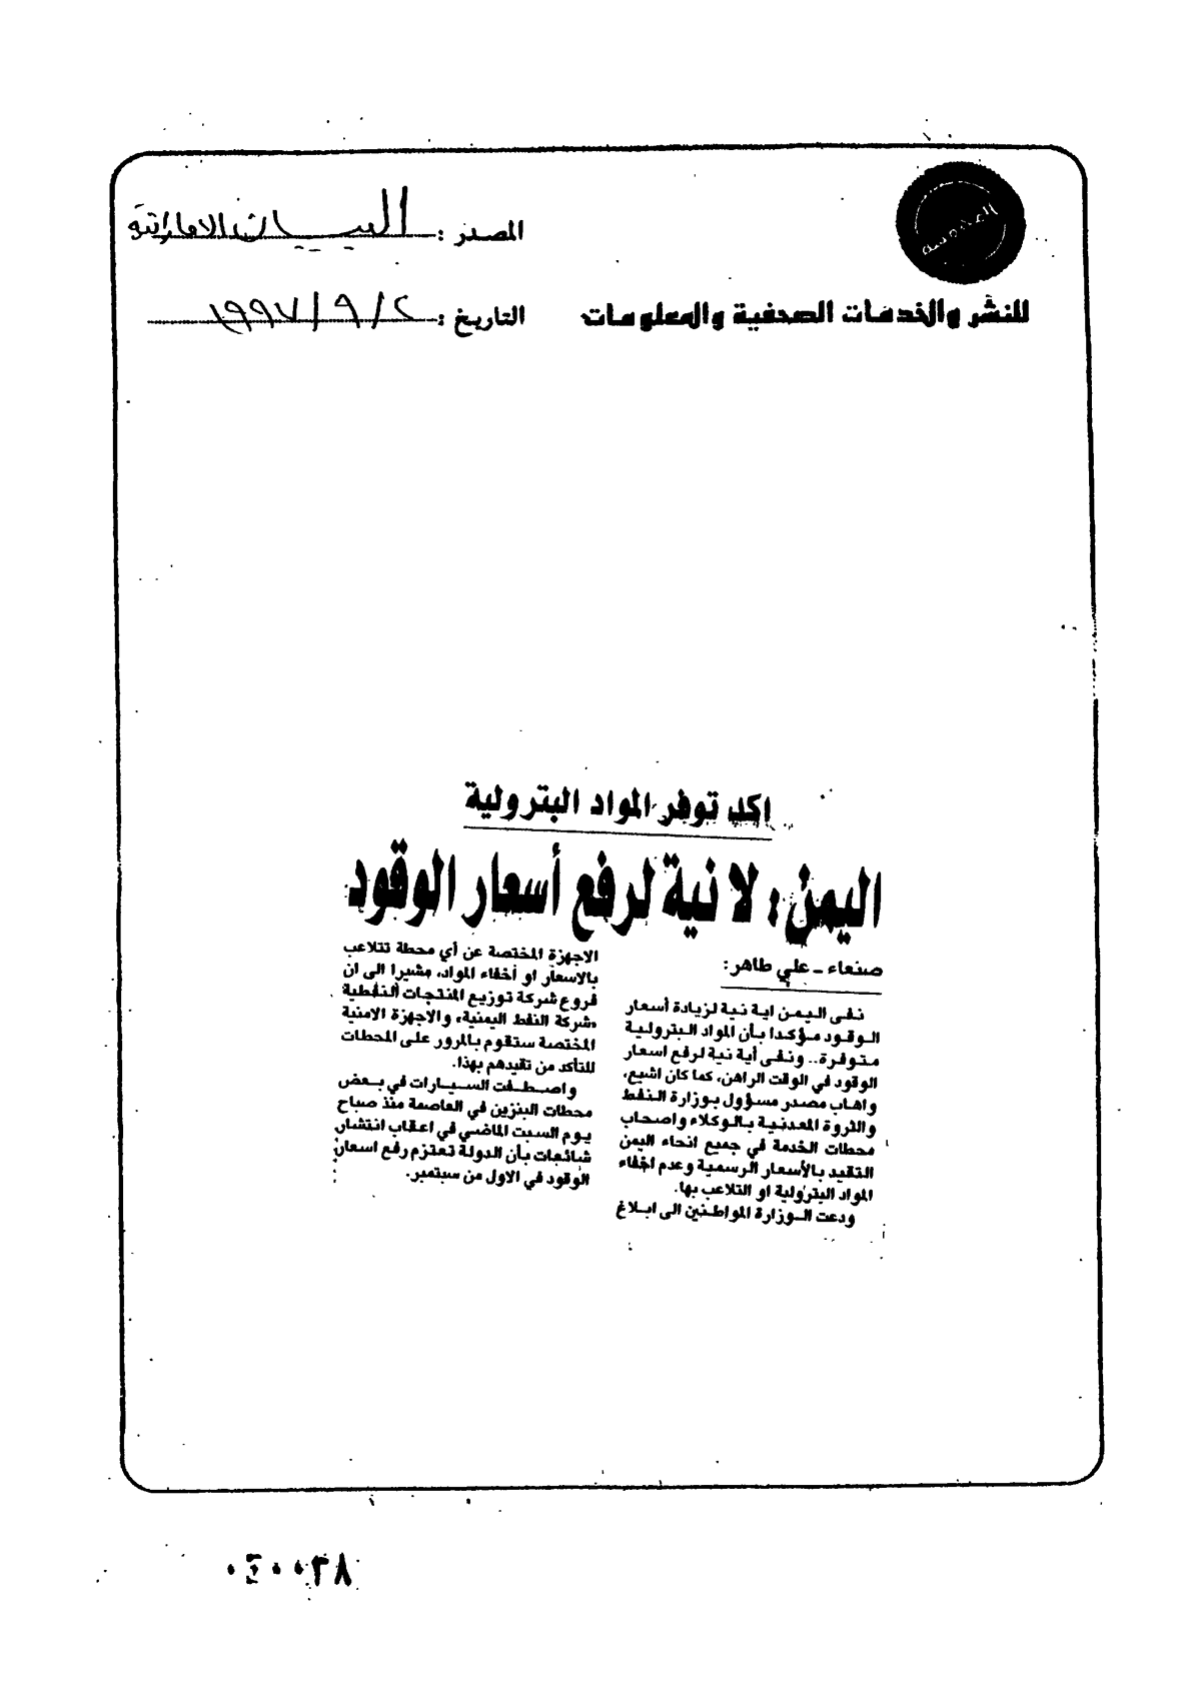 المصدر : البيان الاماراتية
للنشر والخدمات الصحفية والمعلومات
التاريخ : ٢ / ٩ / ١٩٩٧
اكد توفر المواد البترولية
اليمن : لا نية لرفع أسعار الوقود
صنعاء ـ علي طاهر:
نفى اليمن اية نية لزيادة أسعار
الوقود مؤكدا بأن المواد البترولية
متوفرة.. ونفى أية نية لرفع اسعار
الوقود في الوقت الراهن، كما كان اشيع،
واهاب مصدر مسؤول بوزارة النفط
والثروة المعدنية بالوكلاء واصحاب
محطات الخدمة في جميع انحاء اليمن
التقيد بالأسعار الرسمية وعدم اخفاء
المواد البترولية او التلاعب بها.
ودعت الوزارة المواطنين الى ابلاغ
الاجهزة المختصة عن أي محطة تتلاعب
بالاسعار او أخفاء المواد، مشيرا الى ان
فروع شركة توزيع المنتجات النفطية
«شركة النفط اليمنية» والاجهزة الامنية
المختصة ستقوم بالمرور على المحطات
للتأكد من تقيدهم بهذا.
واصطفت السيارات في بعض
محطات البنزين في العاصمة منذ صباح
يوم السبت الماضي في اعقاب انتشار
شائعات بأن الدولة تعتزم رفع اسعار
الوقود في الاول من سبتمبر.
٠٤٠٠٣٨